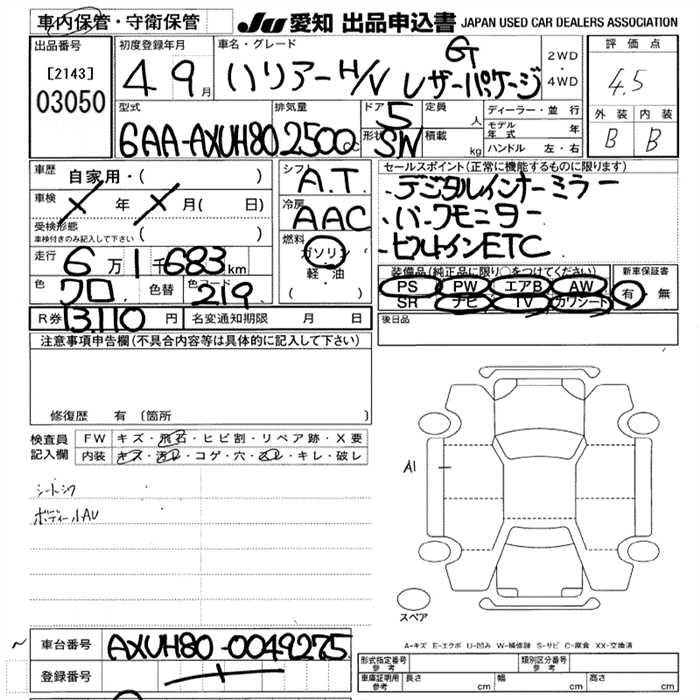 車内保管・守衛保管 JU 愛知 出品申込書 JAPAN USED CAR DEALERS ASSOCIATION
出品番号 初度登録年月 車名・グレード 評価点
[2143] 03050 4 9月 ハリアーH/V G レザーパッケージ 2WD・4WD 4.5
型式 排気量 ドア 5 定員 人 ディーラー・並行 外装 内装
6AA-AXUH80 2500cc 形状 SW 積載 kg モデル年式 年 B B
ハンドル 左・右
車歴 自家用・( ) シフト A.T. セールスポイント(正常に機能するものに限ります)
車検 × 年 × 月( 日) 冷房 AAC ・デジタルインナーミラー
受検形態 車検付きのみ記入して下さい ( ) ・パークモニター
走行 6万1千683km 燃料 ガソリン ・ビルトインETC
軽・油
( )
装備品(純正品に限り○をつけてください) 新車保証書
色 クロ 色替 色コード 219 PS PW エアB AW 有・無
SR ナビ TV カワシート
R券 13.110 円 名変通知期限 月 日 後日品
注意事項申告欄(不具合内容等は具体的に記入して下さい)
修復歴 有 (箇所
検査員記入欄 FW キズ・飛石・ヒビ割・リペア跡・X要
内装 キズ・汚レ・コゲ・穴・スレ・キレ・破レ
A1
シートシワ
スペア
A-キズ E-エクボ U-凹み W-補修跡 S-サビ C-腐食 XX-交換済
車台番号 AXUH80-0049275
登録番号
形式指定番号 参考 類別区分番号 参考
車庫証明用 参考 長さ cm 幅 cm 高さ cm